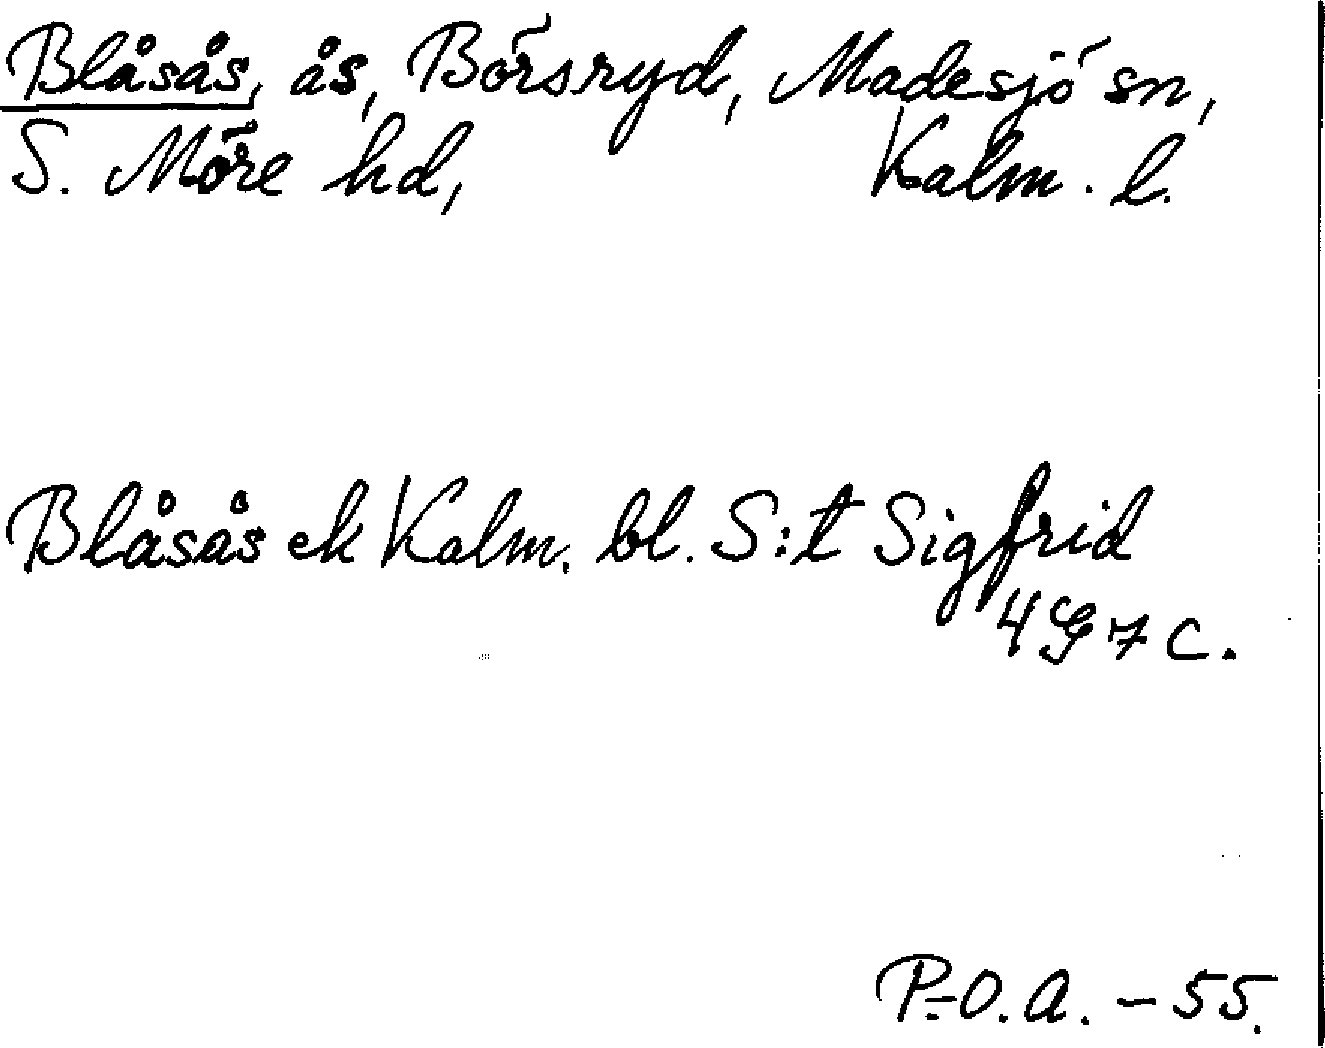 Blåsås, ås, Börsryd, Madesjö sn,
S. Möre hd, Kalm. l.
Blåsås ek Kalm. bl. S:t Sigfrid
4G7c.
P.-O.A. - 55.